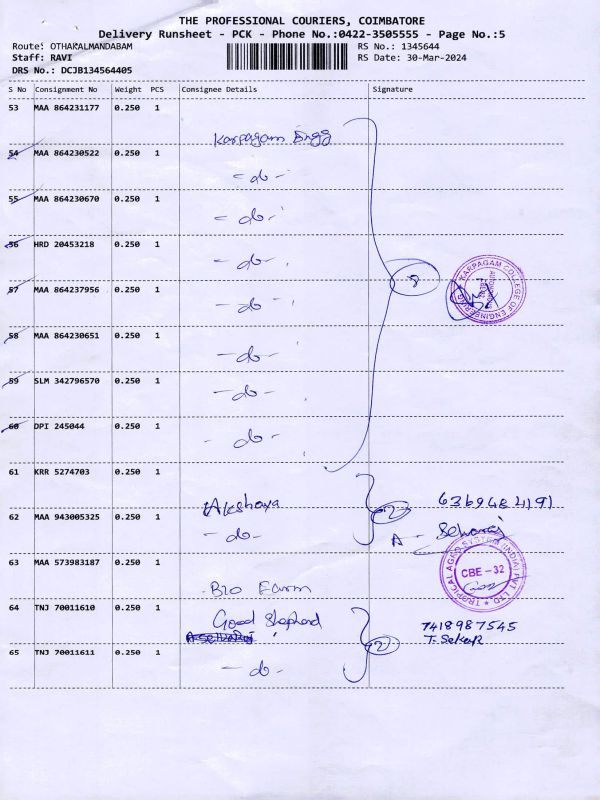 THE PROFESSIONAL COURIERS, COIMBATORE
Delivery Runsheet - PCK - Phone No.:0422-3505555 - Page No.:5
Route: OTHAKALMANDABAM RS No.: 1345644
Staff: RAVI RS Date: 30-Mar-2024
DRS No.: DCJB134564405
S No Consignment No Weight PCS Consignee Details Signature
53 MAA 864231177 0.250 1
Karpagam Engg
54 MAA 864230522 0.250 1
- do -
55 MAA 864230670 0.250 1
- do -
56 HRD 20453218 0.250 1
- do -
57 MAA 864237956 0.250 1
- do -
8
KARPAGAM COLLEGE OF ENGINEERING
58 MAA 864230651 0.250 1
- do -
59 SLM 342796570 0.250 1
- do -
60 DPI 245044 0.250 1
- do -
61 KRR 5274703 0.250 1
Akshaya 2 6369484191
62 MAA 943005325 0.250 1
- do - A - Selvaraj
63 MAA 573983187 0.250 1
TROPICAL AGRO SYSTEM (INDIA) PVT. LTD
CBE - 32
Bio Farm
64 TNJ 70011610 0.250 1
Good Shepherd 7418987545
T. Sekar
2
65 TNJ 70011611 0.250 1
- do -